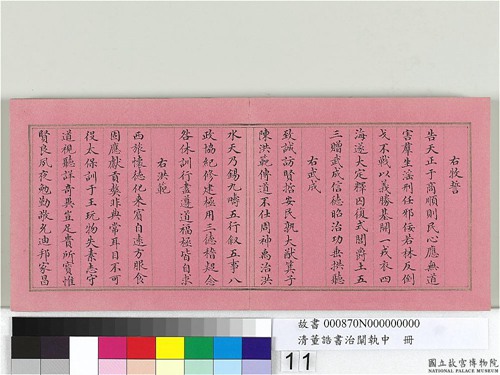 右牧誓
告天正于商順則民心應無道
害羣生淫刑任邪佞若林反倒
戈不戰以義勝墓閒一戎衣四
海遂大定釋囚復式閭爵土五
三贈武成信德昭治功垂拱聽
右武成
致誠訪賢哲安民親大猷箕子
陳洪範傳道不仕周神禹治洪
水天乃錫九疇五行敘五事八
政協紀修建極用三德稽疑念
咎休訓行盡遵道福極皆自求
右洪範
西旅懷德化来賓自遠方服食
因應獻貢獒非典常耳目不可
役太保訓于王玩物失素志守
道視聽詳奇異豈足貴所寳惟
賢良夙夜勉勤敬允迪邦家昌
故書 000870N000000000
清董誥書治闡執中 冊
11
國立故宮博物院
NATIONAL PALACE MUSEUM